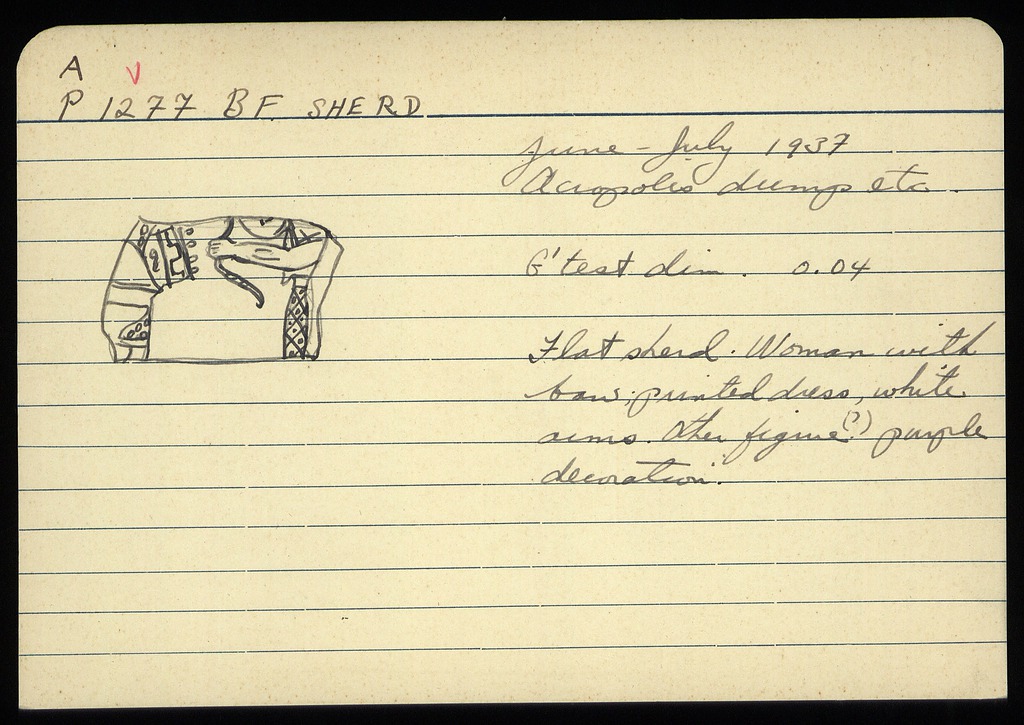 A V
P 1277 BF. SHERD
June - July 1937
Acropolis dump etc.
G'test dim. 0.04
Flat sherd. Woman with
bow; printed dress, white
arms. Other figure (?) purple
decoration.